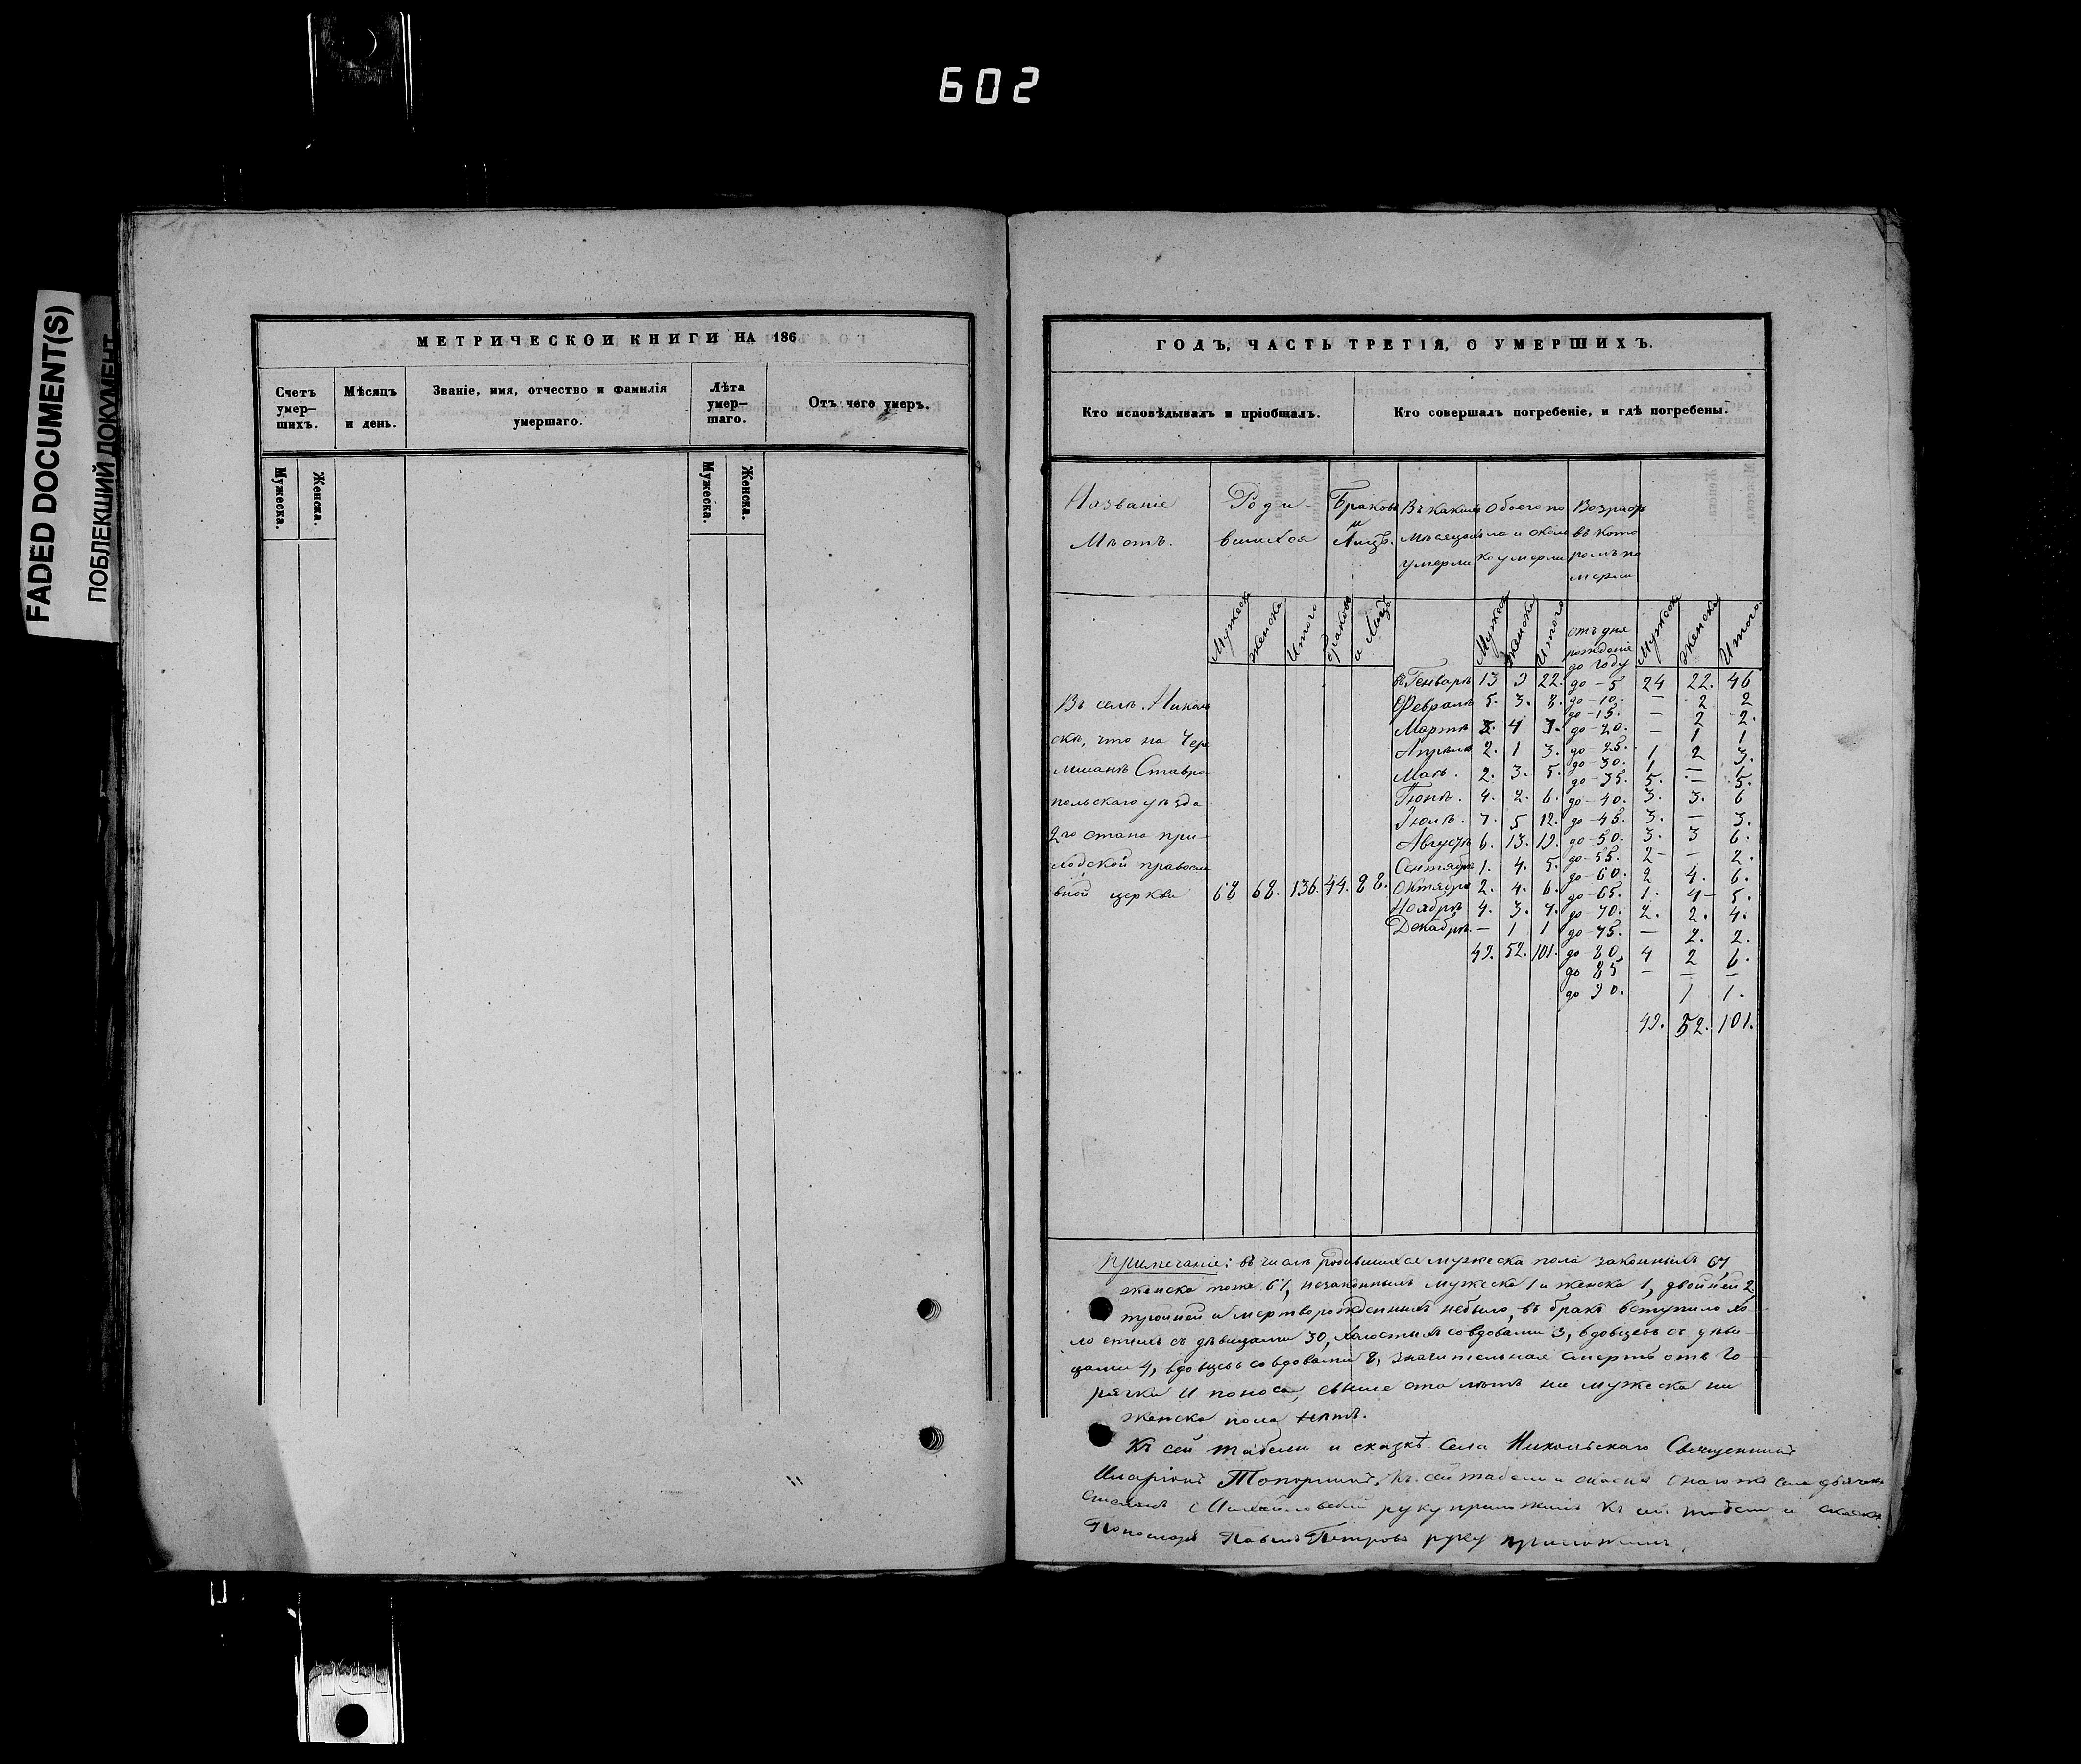 602
FADED DOCUMENT(S)
ПОБЛЕКШИЙ ДОКУМЕНТ
МЕТРИЧЕСКОЙ КНИГИ НА 186
Счетъ умер— шихъ.
Мѣсяцъ и день.
Званіе, имя, отчество и фамилія умершаго.
Лѣта умер— шаго.
Отъ чего умеръ.
Мужеска. Женска. Мужеска. Женска.
ГОДЪ, ЧАСТЬ ТРЕТІЯ, О УМЕРШИХЪ.
Кто исповѣдывалъ и пріобщалъ.
Кто совершалъ погребеніе, и гдѣ погребены.
Названіе Мѣстъ.
Роди- вшихся
Браковъ и Лицъ.
Въ какихъ мѣсяцахъ умерли
Обоего пола и сколько умерли
Возрастъ въ которомъ померли
Мужеск Женска Итого браковъ и Лицъ
Мужеск Женска Итого
отъ дня рожденія до году
Мужеск Женска Итого
Въ селѣ Николь
скѣ, что на Чере
мшанѣ Ставро-
польскаго уѣзда
2го стана при-
ходской правосла
вной церкви 68 68. 136. 44. 88.
въ Генварѣ 13 9 22.
Февралѣ 5. 3. 8.
Мартѣ 3. 4 7.
Апрѣлѣ 2. 1 3.
Маѣ. 2. 3. 5.
Іюнѣ. 4. 2. 6.
Іюлѣ. 7. 5 12.
Августѣ 6. 13. 19.
Сентябрѣ 1. 4. 5.
Октябрѣ 2. 4. 6.
Ноябрѣ 4. 3. 7.
Декабрѣ — 1 1
49. 52. 101.
до - 5 24 22. 46
до - 10. — 2 2
до - 15. — 2 2.
до - 20. — 1 1
до - 25. 1 2 3.
до - 30. 1 — 1
до - 35. 5. — 5.
до - 40. 3. 3. 6
до - 45. 3. — 3.
до - 50. 3. 3 6.
до - 55. 2- — 2.
до - 60. 2 4. 6.
до - 65. 1. 4- 5.
до - 70. 2. 2. 4.
до - 75. — 2. 2.
до 80. 4 2 6.
до 85 — — —
до 90. 1 1.
49. 52. 101.
Примечаніе: въ числѣ родившихся мужеска пола законныхъ 67
женска пола 67, незаконныхъ мужеска 1 и женска 1, двойней 2
тройней и мертворожденныхъ небыло, въ бракъ вступило хо-
лостыхъ съ дѣвицами 30, холостыхъ со вдовами 3, вдовцевъ съ дѣви-
цами 4, вдовцевъ со вдовами 8, значительная смерть отъ го-
рячки и поноса, свыше ста лѣтъ ни мужеска ни
женска пола нѣтъ.
Къ сей табели и сказкѣ села Никольскаго Священникъ
Иларіонъ Топорнинъ. Къ сей табели и скаске онаго же села дьячекъ
руку приложилъ Къ сей табели и скаске
Пономарь Павелъ Петровъ руку приложилъ.